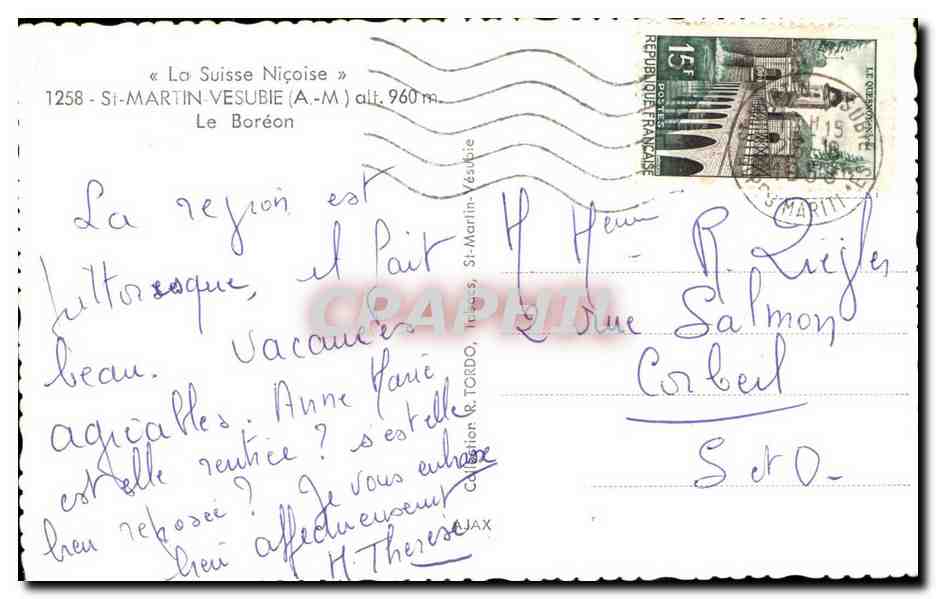 « La Suisse Niçoise »
1258 - St-MARTIN-VESUBIE (A.-M) alt. 960 m.
Le Boréon
La region est
pittoresque, il fait
beau. Vacances
agréables. Anne Marie
est elle rentrée ? s'est elle
bien reposée ? Je vous embrasse
bien affectueusement
M. Therese
Collection R. TORDO, Tabacs, St-Martin-Vésubie
AJAX
15F
POSTES
REPUBLIQUE FRANÇAISE
LE QUESNOY
H 15
MARITI
M Mme R. Ziegler
2 rue Salmon
Corbeil
S et O
CPAPHIL